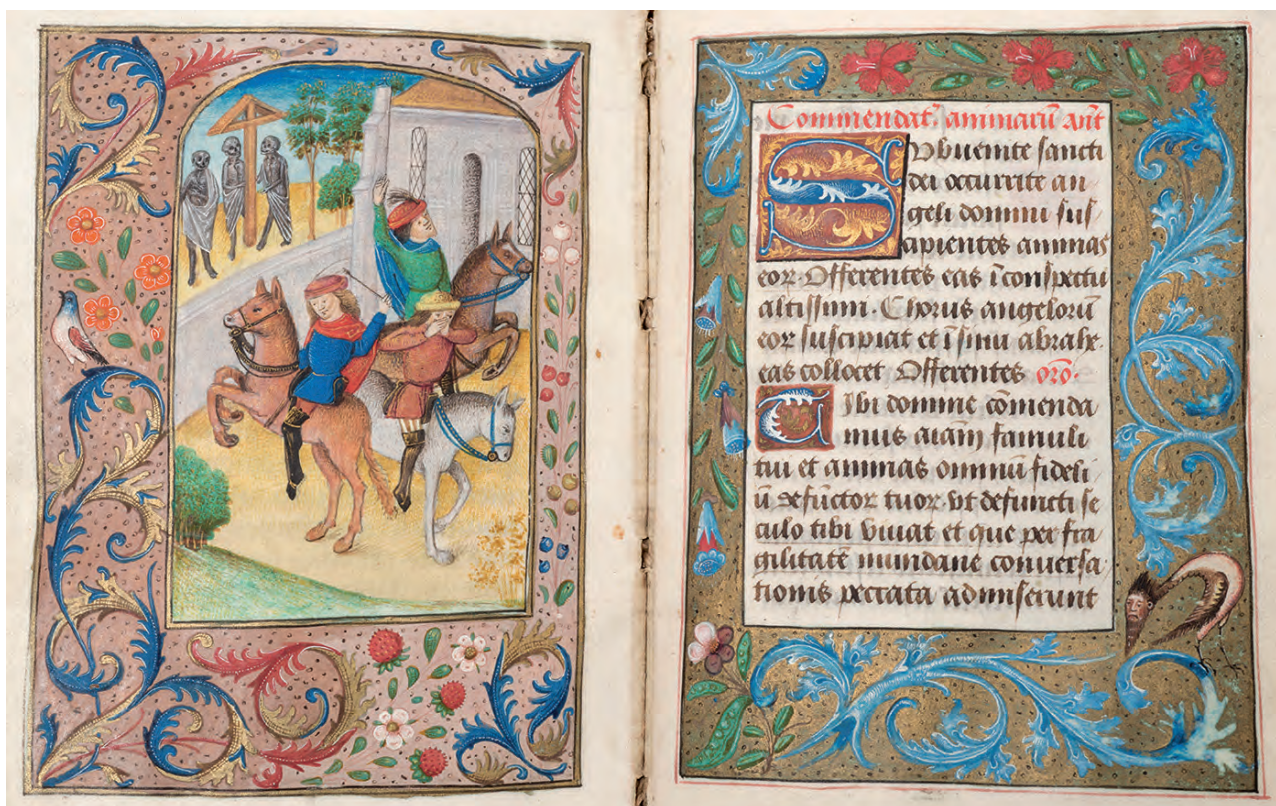 Commendat᷒ animarū ant
Subuenite sancti
dei occurrite an
geli domini sus
cipientes animas
eor. Offerentes eas ī conspectu
altissimi. Chorus angelorū
eor suscipiat et ī sinu abrahe
eas collocet Offerentes orō.
Tibi domine cōmenda
mus aīam famuli
tui et animas omniū fideli
ū defūctor tuor. vt defuncti se
culo tibi viuāt et que per fra
gilitatē mundane conuersa
tionis peccata admiserunt